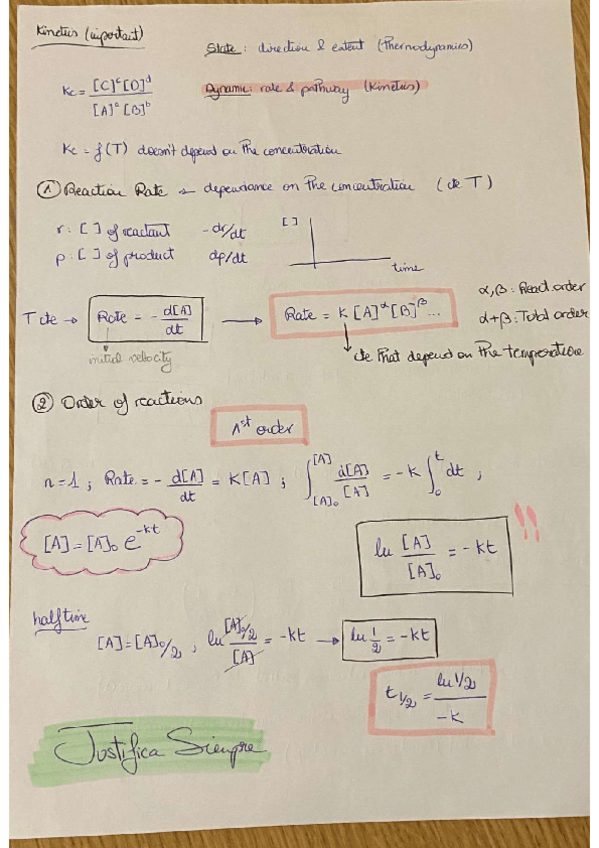 Kinetics (important)
State: direction & extent (thermodynamics)
Dynamic: rate & pathway (Kinetics)
Kc = [C]^c [D]^d / [A]^a [B]^b
Kc = f(T) doesn't depend on the concentration
① Reaction Rate → dependance on the concentration (cte T)
r: [ ] of reactant -dr/dt
p: [ ] of product dp/dt
[ ]
time
T cte → Rate = - d[A]/dt → Rate = K [A]^α [B]^β ...
α, β: React. order
α+β: Total order
initial velocity
cte that depend on the temperature
② Order of reactions
1st order
n=1 ; Rate = - d[A]/dt = K[A] ; ∫_{[A]₀}^{[A]} d[A]/[A] = -K ∫_0^t dt ;
[A] = [A]₀ e^{-kt}
ln [A]/[A]₀ = -kt !!
half time
[A] = [A]₀/2 , ln [A]₀/2 / [A] = -kt → ln 1/2 = -kt
t 1/2 = ln 1/2 / -k
Justifica Siempre